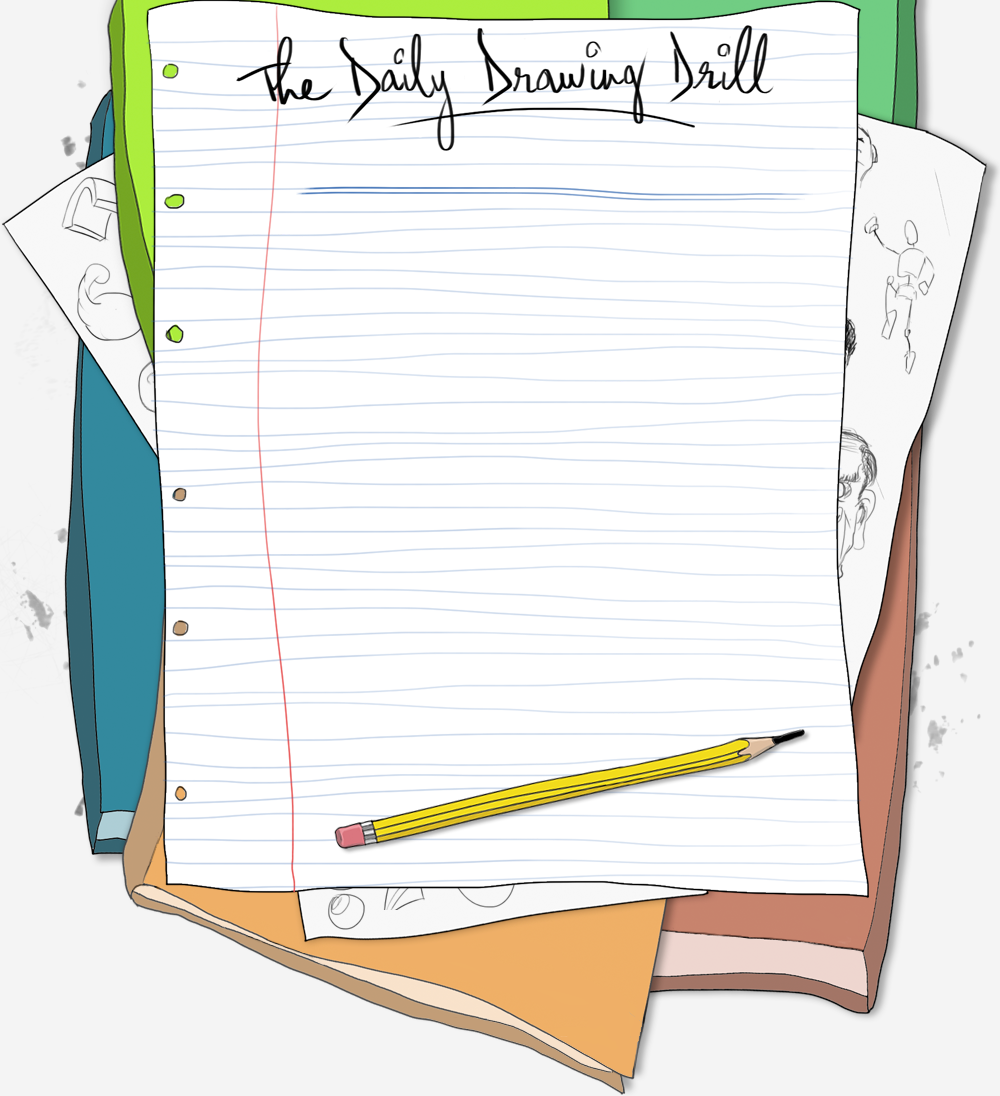 The Daily Drawing Drill